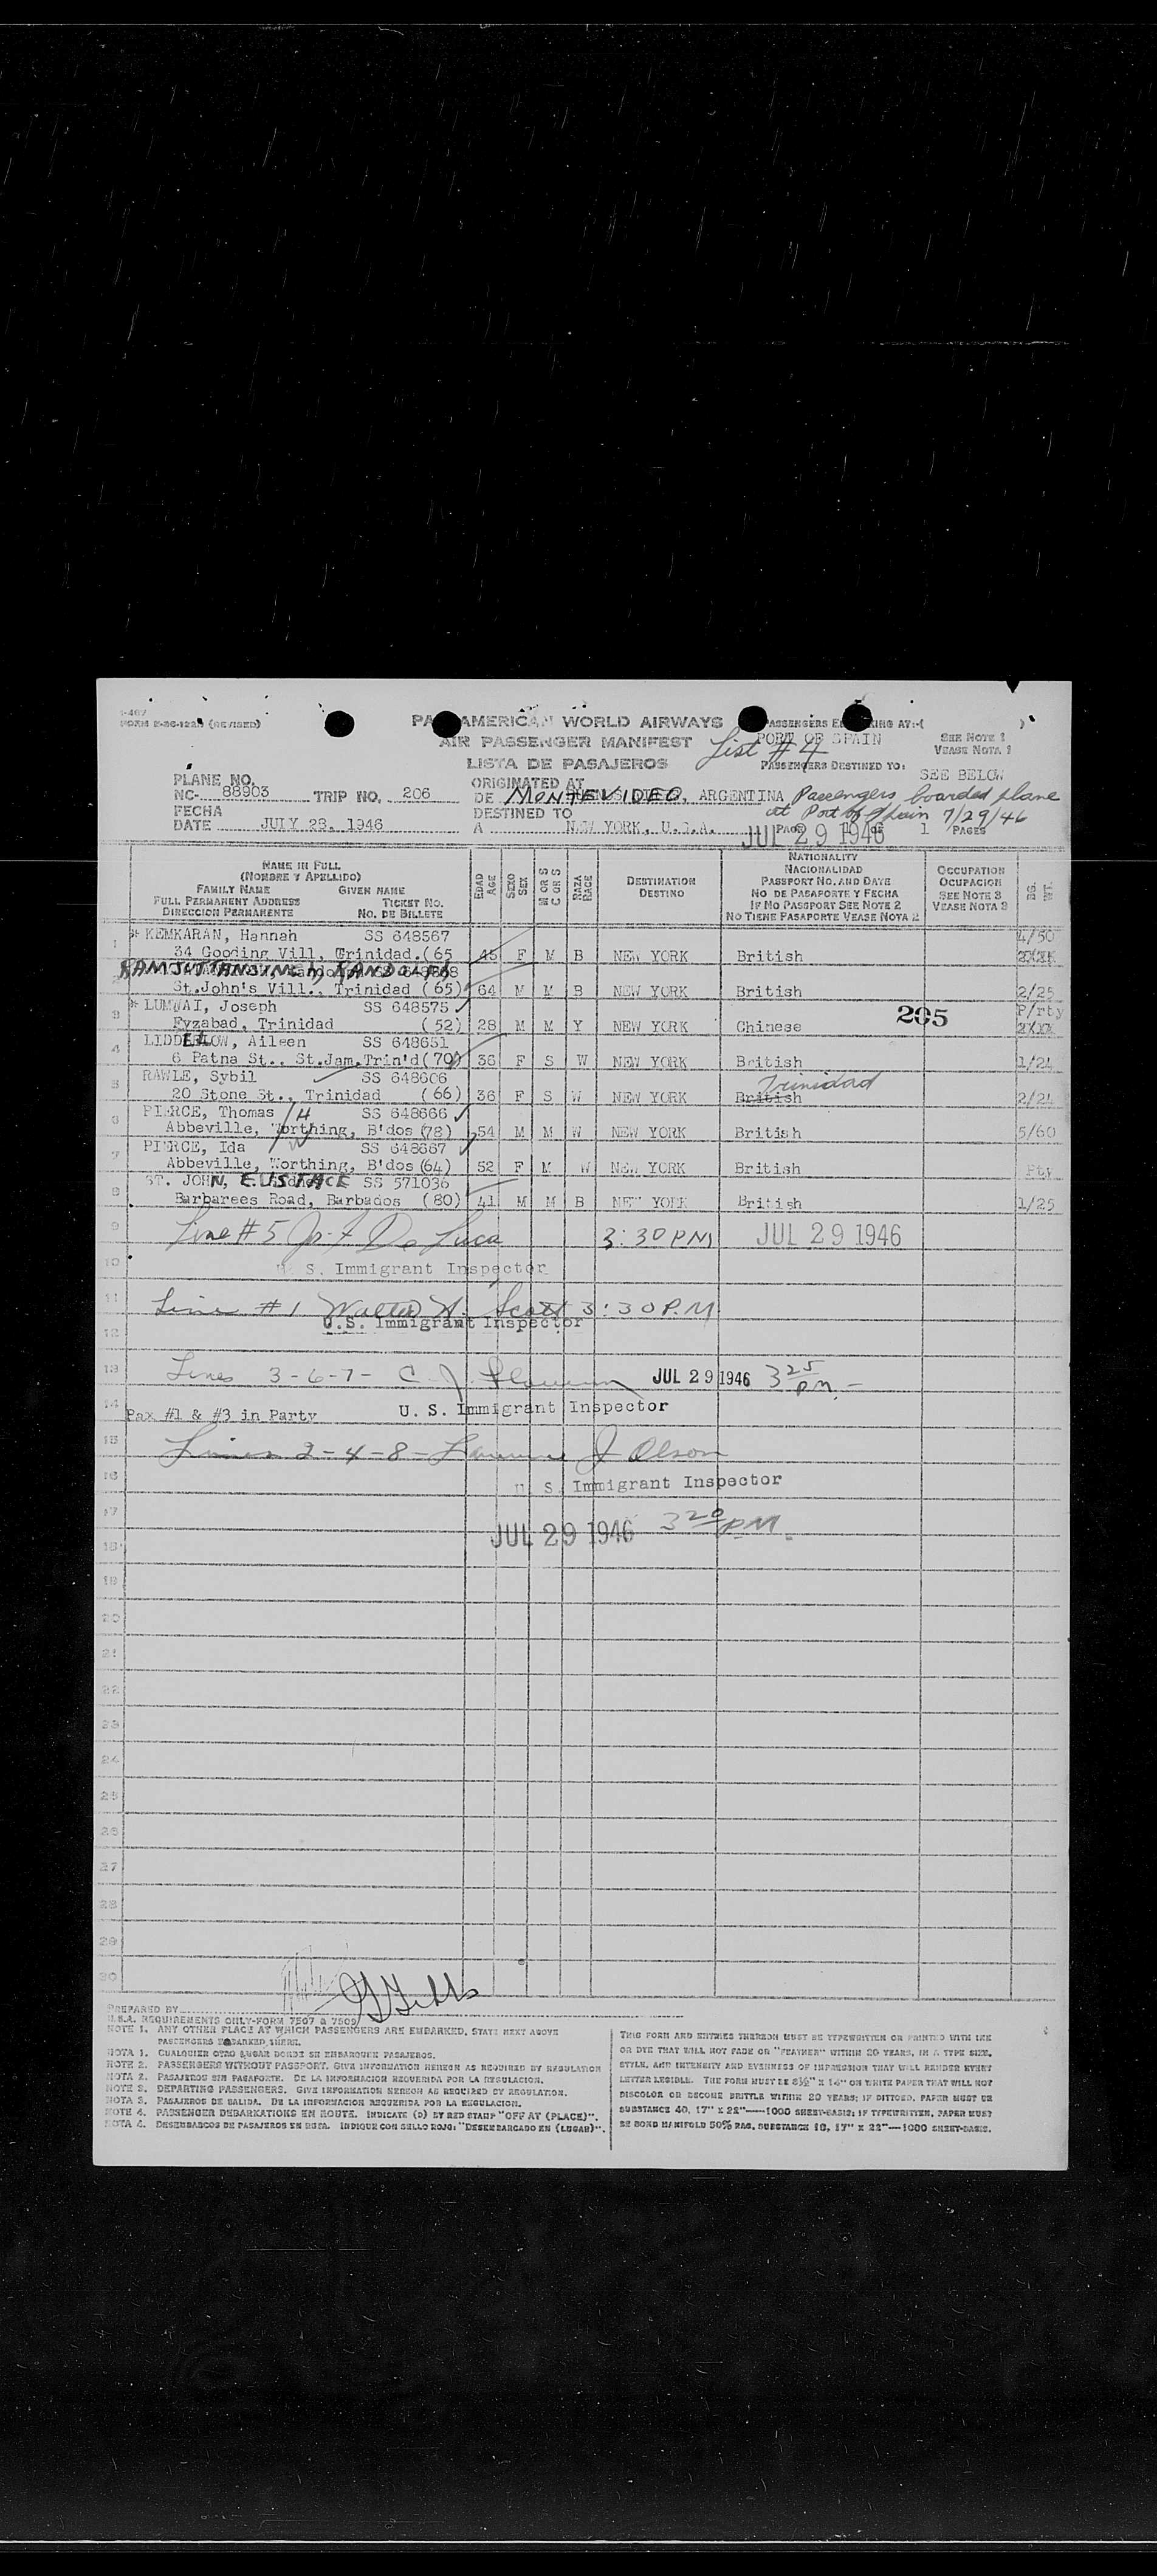 FORM (REVISED)
PAN AMERICAN WORLD AIRWAYS
AIR PASSENGER MANIFEST
LISTA DE PASAJEROS
List #4
PASSENGERS EMBARKING AT:-( )
PORT OF SPAIN
PASSENGERS DESTINED TO:
SEE BELOW
SEE NOTE 1
VEASE NOTA 1
PLANE NO.
NC- 88903 TRIP NO. 206
FECHA
DATE JULY 28, 1946
ORIGINATED AT
DE MONTEVIDEO, ARGENTINA
DESTINED TO
A NEW YORK, U.S.A.
Passengers boarded plane
at Port of Spain 7/29/46
JUL 29 1946
1 PAGES
NAME IN FULL
(NOMBRE Y APELLIDO)
FAMILY NAME GIVEN NAME
FULL PERMANENT ADDRESS TICKET NO.
DIRECCION PERMANENTE NO. DE BILLETE
EDAD AGE
SEXO SEX
M OR S C OR S
RAZA RACE
DESTINATION
DESTINO
NATIONALITY
NACIONALIDAD
PASSPORT NO. AND DATE
NO DE PASAPORTE Y FECHA
IF NO PASSPORT SEE NOTE 2
NO TIENE PASAPORTE VEASE NOTA 2
OCCUPATION
OCUPACION
SEE NOTE 3
VEASE NOTA 3
BG. WT.
1 * KEMKARAN, Hannah SS 648567 4/50
34 Gooding Vill, Trinidad.(65 45 F M B NEW YORK British
2 RAMJUTTANSINGH, RANDOLPH
St.John's Vill., Trinidad (65) 64 M M B NEW YORK British 2/25
3 * LUMWAI, Joseph SS 648575 P/rty
Fyzabad, Trinidad (52) 28 M M Y NEW YORK Chinese
205
4 LIDDELOW, Aileen SS 648651
6 Patna St., St.Jam.Trin'd(70) 36 F S W NEW YORK British 1/24
5 RAWLE, Sybil SS 648606 Trinidad
20 Stone St., Trinidad (66) 36 F S W NEW YORK British 2/24
6 PIERCE, Thomas /H SS 648666
Abbeville, Worthing, B'dos (78) 54 M M W NEW YORK British 5/60
7 PIERCE, Ida /W SS 648667
Abbeville, Worthing, B'dos (64) 52 F M W NEW YORK British Pty
8 ST. JOHN, EUSTACE SS 571036
Barbarees Road, Barbados (80) 41 M M B NEW YORK British 1/25
9 Line #5 De Luca 3:30 PM JUL 29 1946
10 U. S. Immigrant Inspector
11 Line #1 Walter H. Scott 3:30 P.M
U.S. Immigrant Inspector
12
13 Lines 3-6-7- C. J. JUL 29 1946 3 25 pm. -
14 Pax #1 & #3 in Party U. S. Immigrant Inspector
15 Lines 2-4-8- J Olson
16 U S. Immigrant Inspector
17
JUL 29 1946 3 20 PM.
18
19
20
21
22
23
24
25
26
27
28
29
30
PREPARED BY
U.S.A. REQUIREMENTS ONLY-FORM 7507 & 7509
NOTE 1. ANY OTHER PLACE AT WHICH PASSENGERS ARE EMBARKED, STATE NEXT ABOVE
PASSENGERS EMBARKED THERE.
NOTA 1. CUALQUIER OTRO LUGAR DONDE SE EMBARQUEN PASAJEROS.
NOTE 2. PASSENGERS WITHOUT PASSPORT. GIVE INFORMATION HEREON AS REQUIRED BY REGULATION
NOTA 2. PASAJEROS SIN PASAPORTE. DE LA INFORMACION REQUERIDA POR LA REGULACION.
NOTE 3. DEPARTING PASSENGERS. GIVE INFORMATION HEREON AS REQUIRED BY REGULATION.
NOTA 3. PASAJEROS DE SALIDA. DE LA INFORMACION REQUERIDA POR LA REGULACION.
NOTE 4. PASSENGER DEBARKATIONS EN ROUTE. INDICATE (D) BY RED STAMP "OFF AT (PLACE)".
NOTA 4. DESEMBARCOS DE PASAJEROS EN RUTA. INDIQUE CON SELLO ROJO: "DESEMBARCADO EN (LUGAR)".
THIS FORM AND ENTRIES THEREON MUST BE TYPEWRITTEN OR PRINTED WITH INK
OR DYE THAT WILL NOT FADE OR "FEATHER" WITHIN 20 YEARS, IN A TYPE SIZE,
STYLE, AND INTENSITY AND EVENNESS OF IMPRESSION THAT WILL RENDER EVERY
LETTER LEGIBLE. THE FORM MUST BE 8½" X 14" ON WHITE PAPER THAT WILL NOT
DISCOLOR OR BECOME BRITTLE WITHIN 20 YEARS; IF DITTOED, PAPER MUST BE
SUBSTANCE 40, 17" X 22"—1000 SHEET-BASIS; IF TYPEWRITTEN, PAPER MUST
BE BOND MANIFOLD 50% RAG, SUBSTANCE 18, 17" X 22"—1000 SHEET-BASIS.